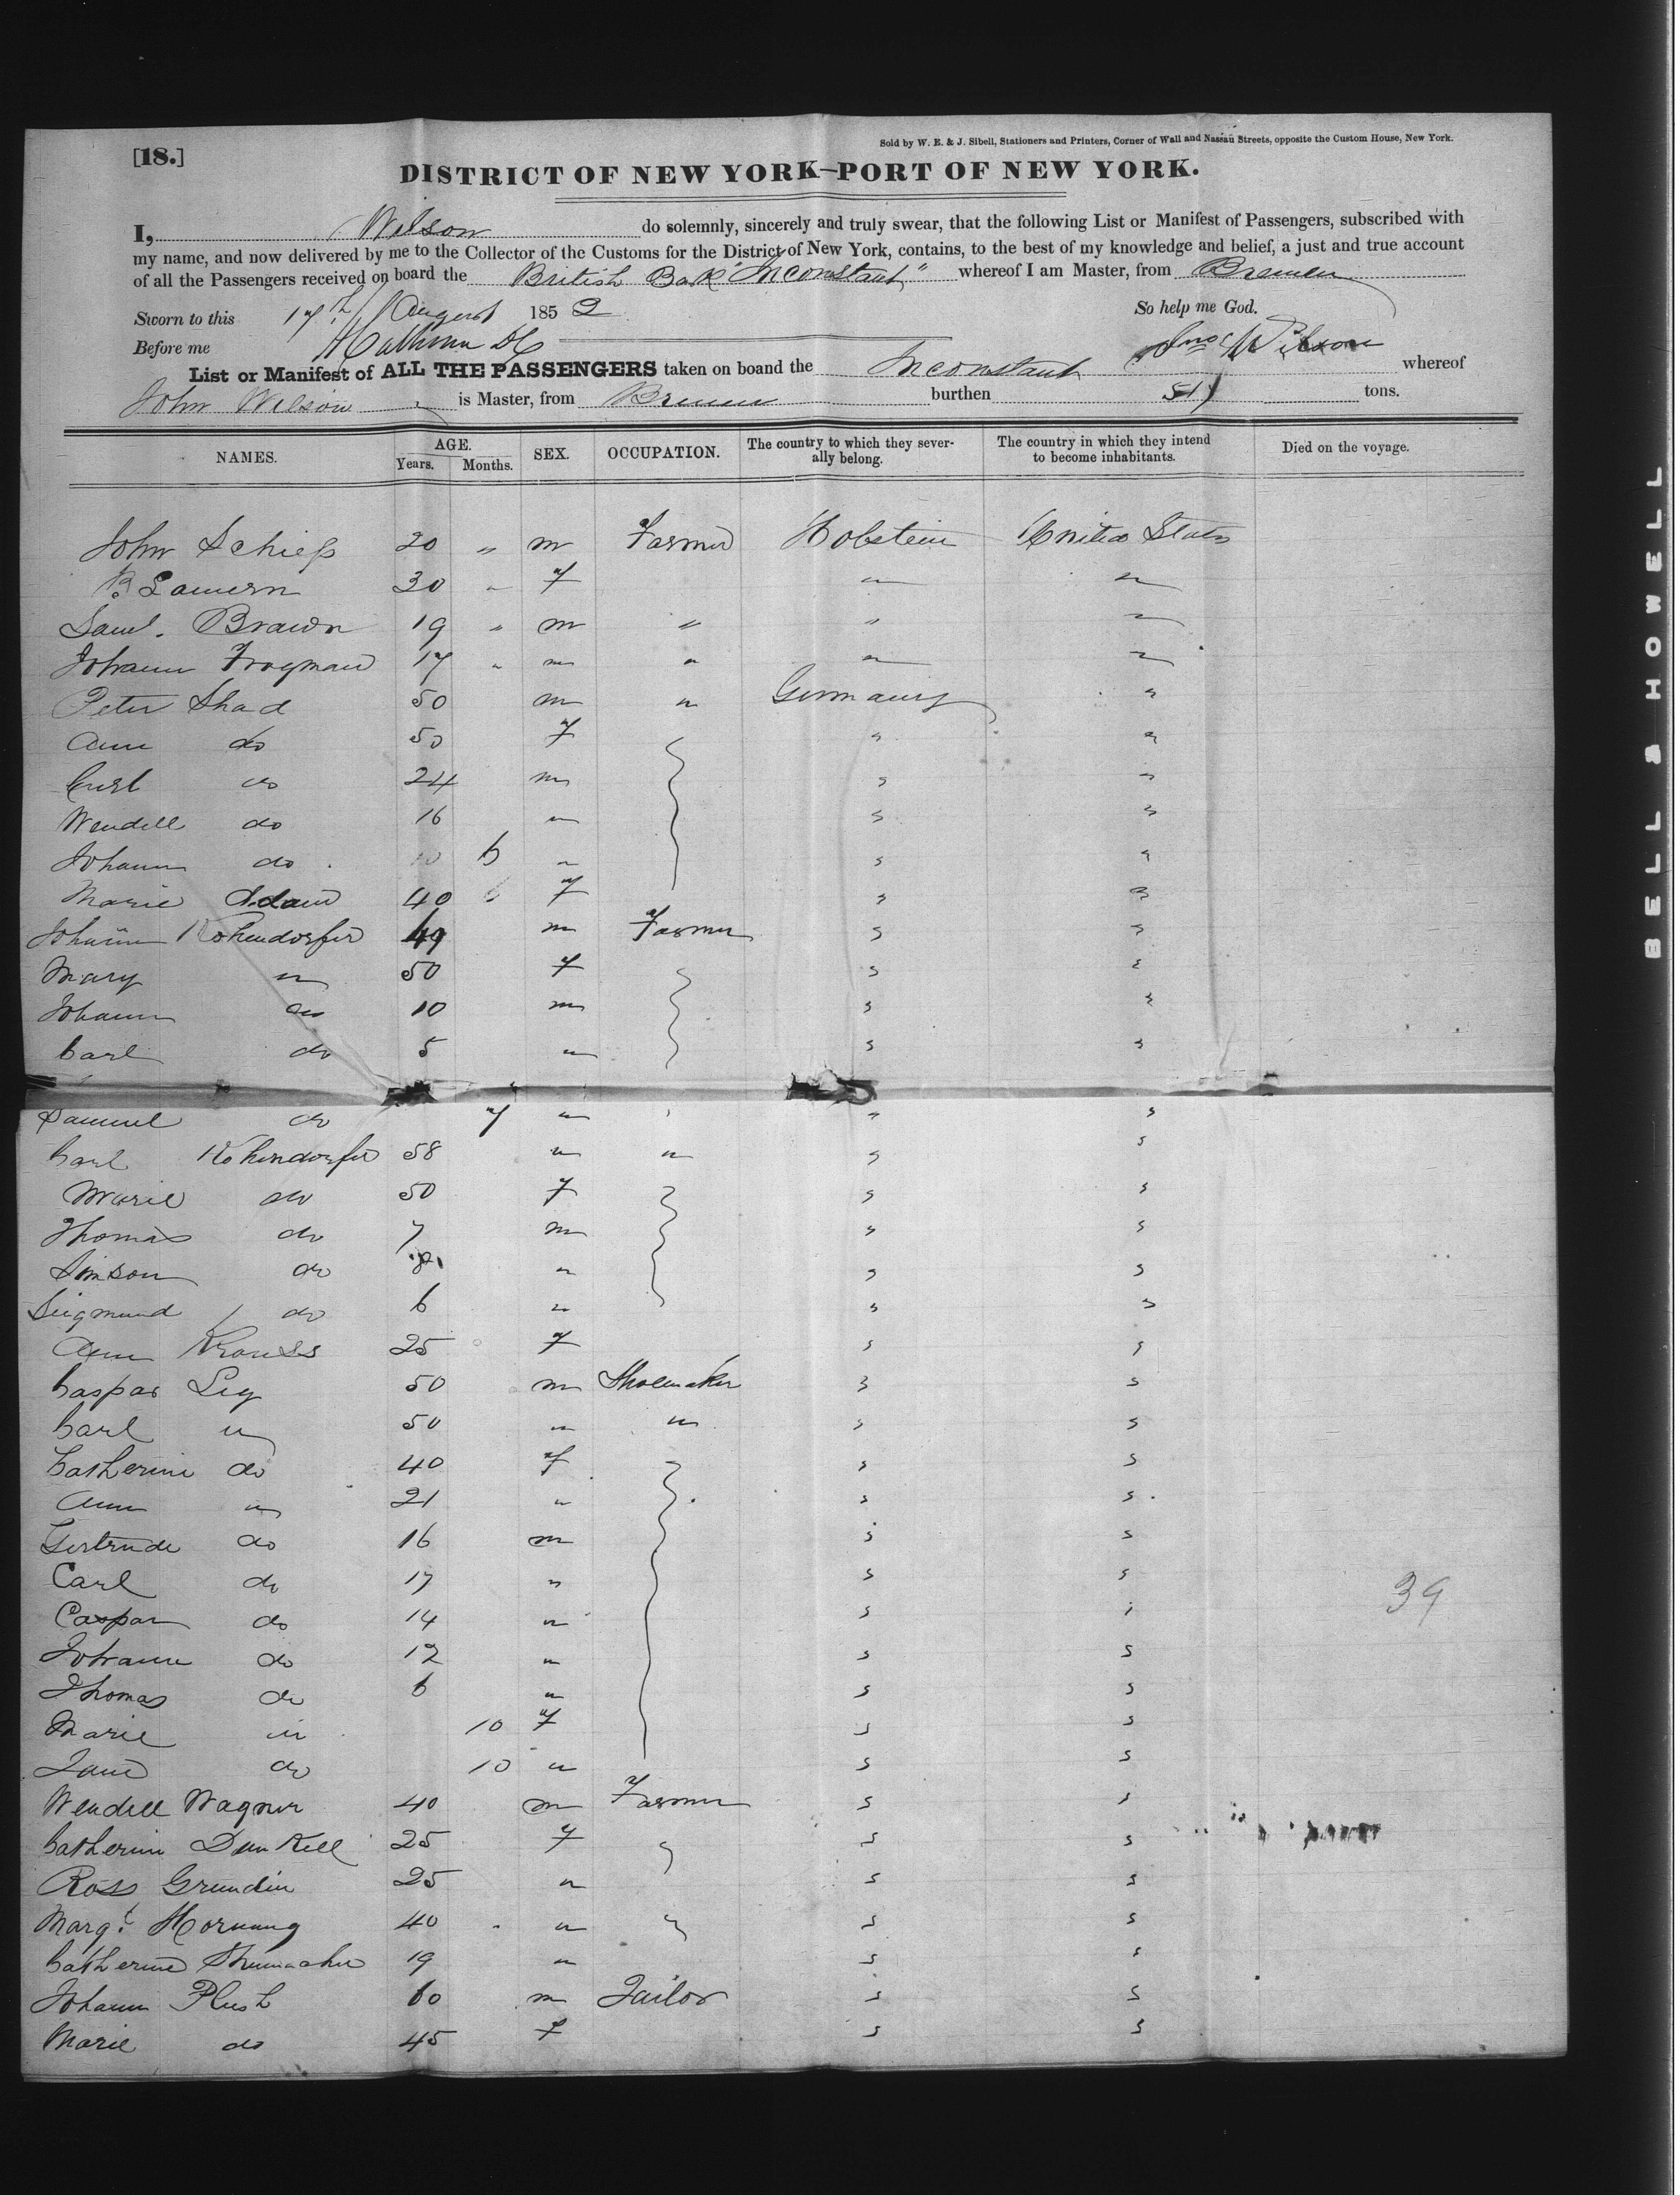 Sold by W. E. & J. Sibell, Stationers and Printers, Corner of Wall and Nassau Streets, opposite the Custom House, New York.
[18.]
DISTRICT OF NEW YORK—PORT OF NEW YORK.
I, Wilson do solemnly, sincerely and truly swear, that the following List or Manifest of Passengers, subscribed with
my name, and now delivered by me to the Collector of the Customs for the District of New York, contains, to the best of my knowledge and belief, a just and true account
of all the Passengers received on board the British Bark "Inconstant" whereof I am Master, from Bremen
Sworn to this 17th August 1852 So help me God.
Before me Jno Wilson
List or Manifest of ALL THE PASSENGERS taken on boand the Inconstant whereof
John Wilson is Master, from Bremen burthen 517 tons.
NAMES. AGE. Years. Months. SEX. OCCUPATION. The country to which they severally belong. The country in which they intend to become inhabitants. Died on the voyage.
John 20 " m Farmer Holstein United States
30 " f " "
Saml. Brawn 19 " m " " "
Johann 17 " m " " "
Peter Shad 50 m " Germany "
Ann do 50 f " "
do 24 m " "
Wendell do 16 " " "
Johann do 10 6 " " "
Marie Adam 40 6 f " "
Johann Kohendorfer 49 m Farmer " "
Mary " 50 f " "
Johann do 10 m " "
Carl do 5 " " "
Samuel do 7 " " "
Carl Kohendorfer 58 " " " "
Marie do 50 f " "
Thomas do 7 m " "
Simson do " " "
Seigmund do 6 " " "
Ann Krauss 25 f " "
Caspar Ley 50 m Shoemaker " "
Carl " 50 " " " "
Catherine do 40 f " "
Ann " 21 " " "
Gertrude do 16 m " "
Carl do 17 " " "
Caspar do 14 " " "
Johann do 12 " " "
Thomas do 6 " " "
Marie " 10 f " "
Jane do 10 " " "
Wendell Wagner 40 m Farmer " "
Catherine Dunkell 25 f " "
Ross Grundin 25 " " "
Margt. Hornung 40 " " "
Catherine Shumacher 19 " " "
Johann Plush 60 m Tailor " "
Marie do 45 f " "
39
BELL & HOWELL